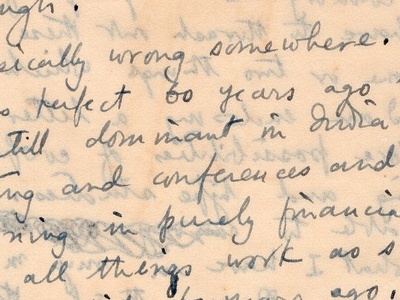 ugh.
sically wrong somewhere.
s perfect 60 years ago
till dominant in India
ng and conferences and
ning in purely financia
all things work as s
years ago.